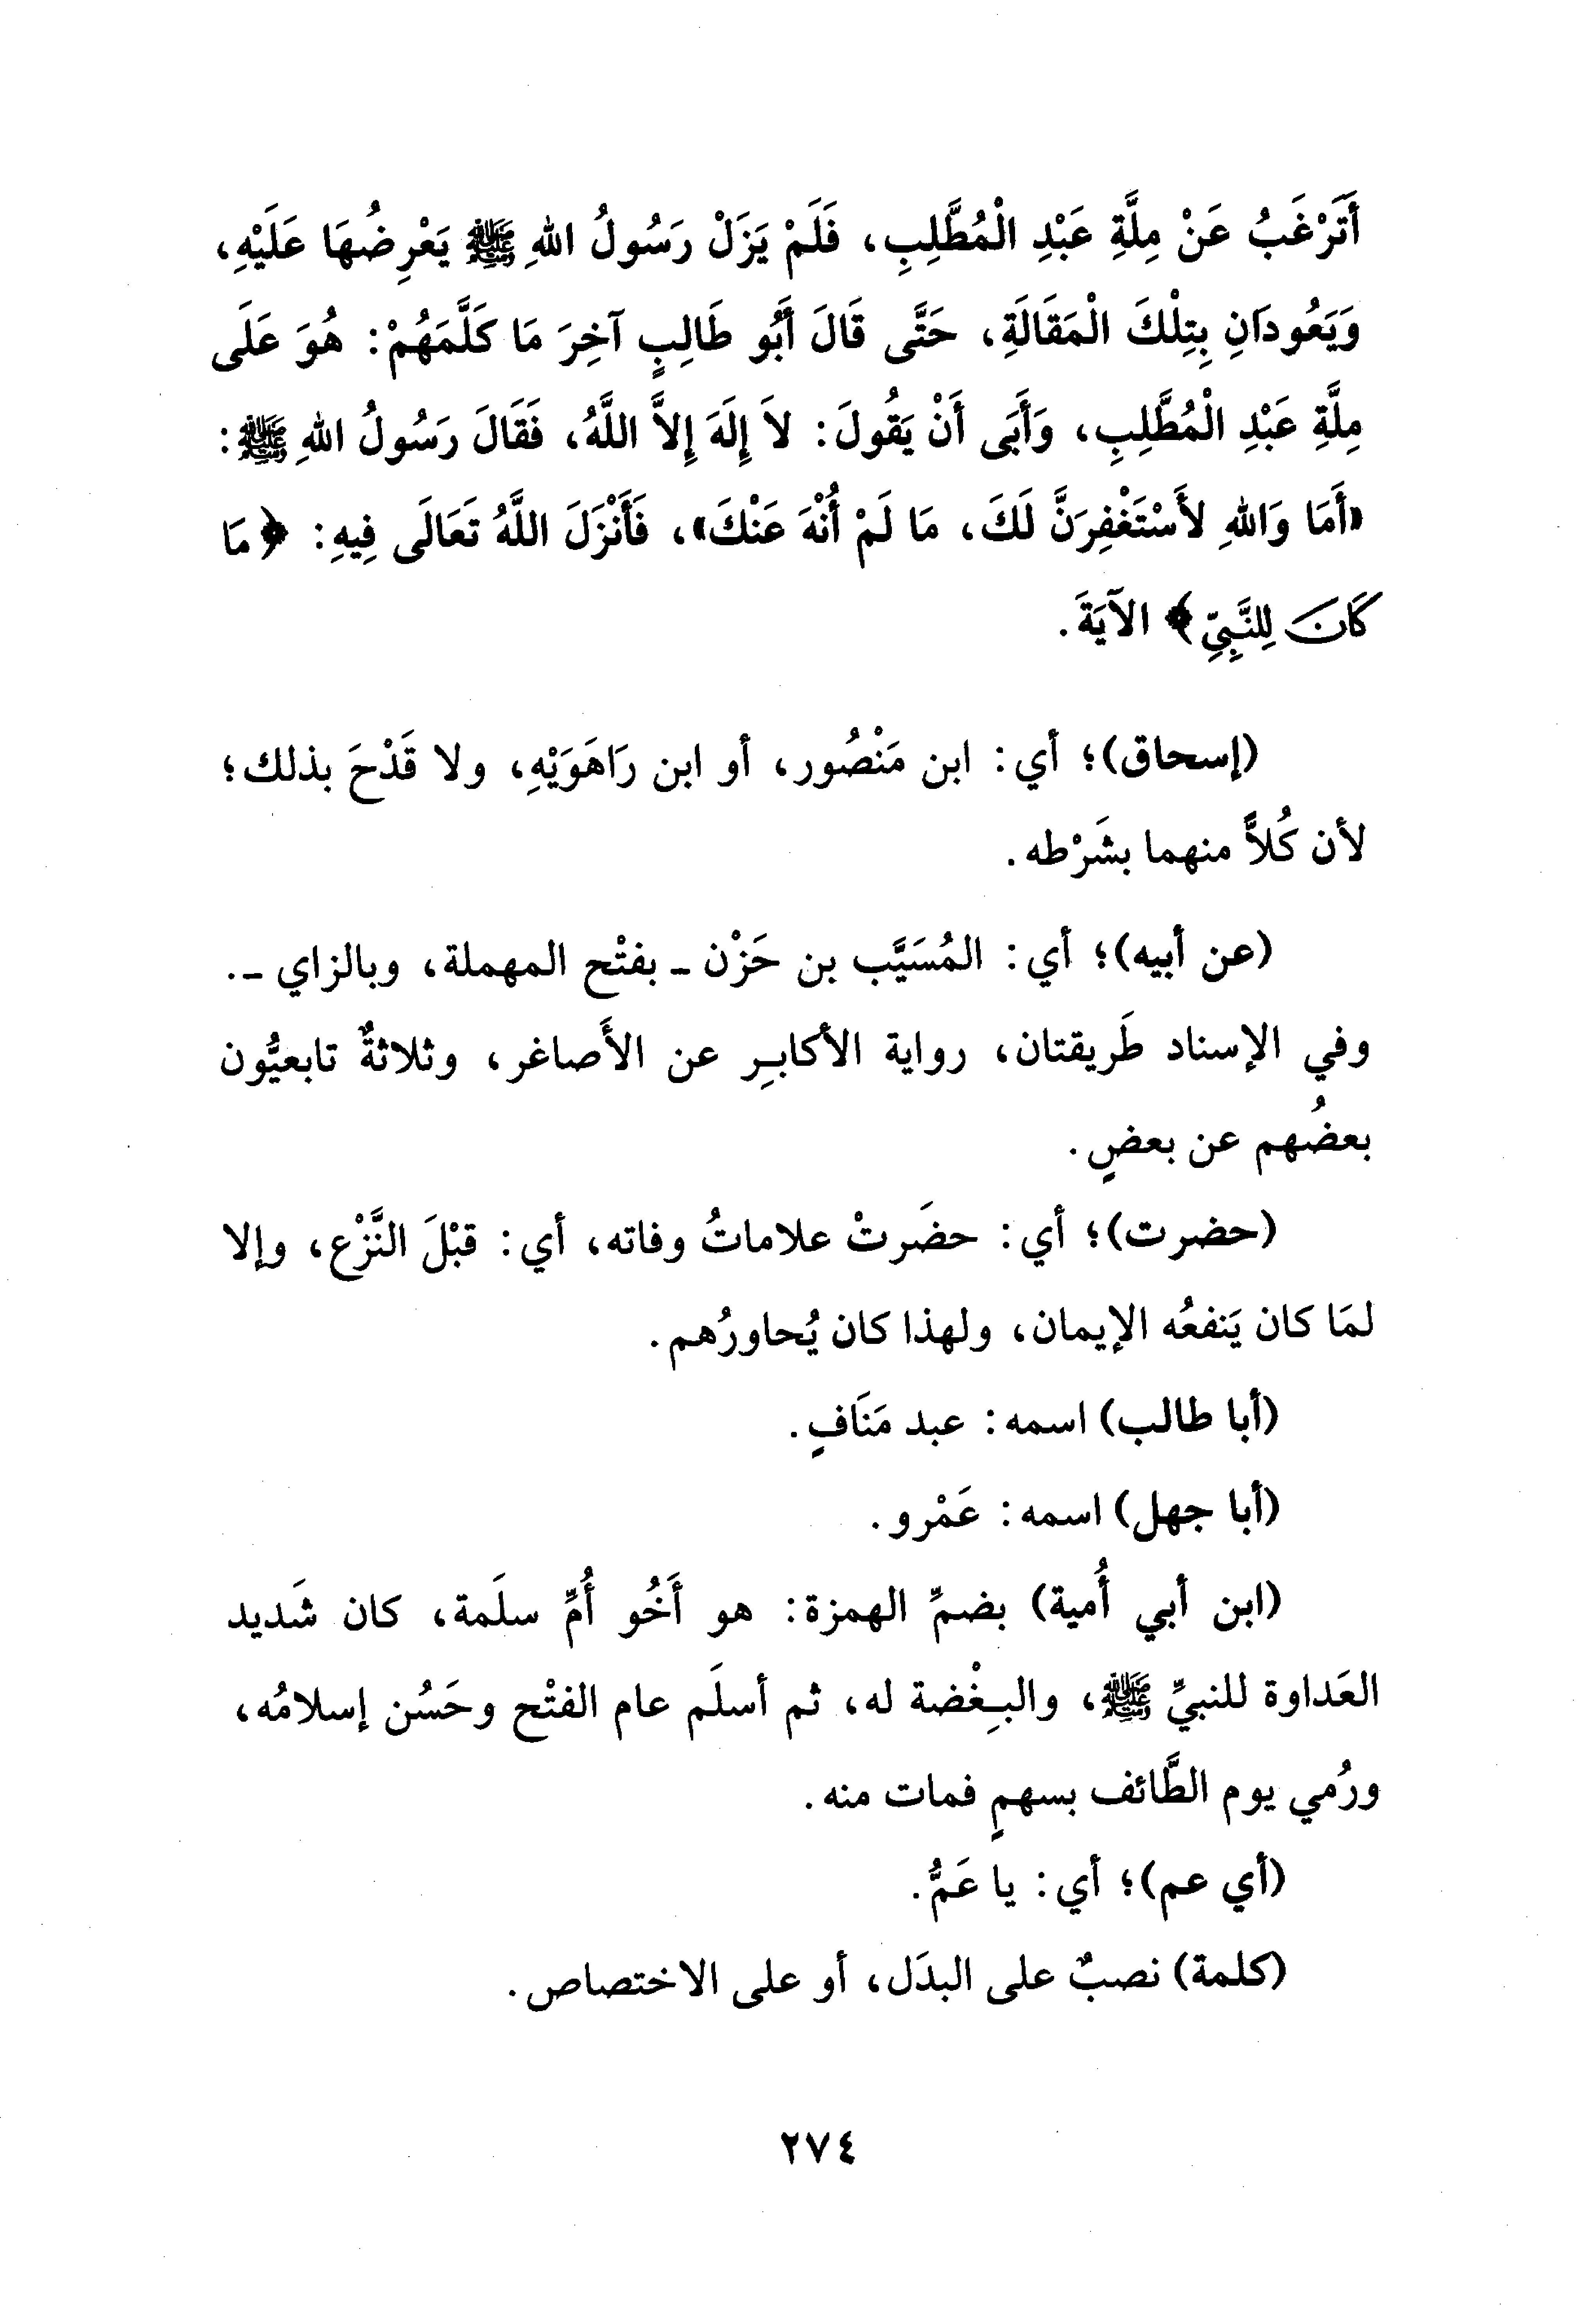 أَتَرْغَبُ عَنْ مِلَّةِ عَبْدِ الْمُطَّلِبِ، فَلَمْ يَزَلْ رَسُولُ اللهِ ﷺ يَعْرِضُهَا عَلَيْهِ،
وَيَعُودَانِ بِتِلْكَ الْمَقَالَةِ، حَتَّى قَالَ أَبُو طَالِبٍ آخِرَ مَا كَلَّمَهُمْ: هُوَ عَلَى
مِلَّةِ عَبْدِ الْمُطَّلِبِ، وَأَبَى أَنْ يَقُولَ: لاَ إِلَهَ إِلاَّ اللَّهُ، فَقَالَ رَسُولُ اللهِ ﷺ:
«أَمَا وَاللهِ لأَسْتَغْفِرَنَّ لَكَ، مَا لَمْ أُنْهَ عَنْكَ»، فَأَنْزَلَ اللَّهُ تَعَالَى فِيهِ: ﴿مَا
كَانَ لِلنَّبِيِّ﴾ الآيَةَ.
(إسحاق)؛ أي: ابن مَنْصُور، أو ابن رَاهَوَيْهِ، ولا قَدْحَ بذلك؛
لأن كُلاًّ منهما بشَرْطه.
(عن أبيه)؛ أي: المُسَيَّب بن حَزْن - بفتْح المهملة، وبالزاي -.
وفي الإسناد طَريقتان، رواية الأكابِر عن الأَصاغر، وثلاثةٌ تابعيُّون
بعضُهم عن بعضٍ.
(حضرت)؛ أي: حضَرتْ علاماتُ وفاته، أي: قبْلَ النَّزْع، وإلا
لمَا كان يَنفعُه الإيمان، ولهذا كان يُحاورُهم.
(أبا طالب) اسمه: عبد مَنَافٍ.
(أبا جهل) اسمه: عَمْرو.
(ابن أبي أُمية) بضمِّ الهمزة: هو أَخُو أُمِّ سلَمة، كان شَديد
العَداوة للنبيِّ ﷺ، والبِغْضة له، ثم أسلَم عام الفتْح وحَسُن إسلامُه،
ورُمي يوم الطَّائف بسهمٍ فمات منه.
(أي عم)؛ أي: يا عَمُّ.
(كلمة) نصبٌ على البدَل، أو على الاختصاص.
٢٧٤